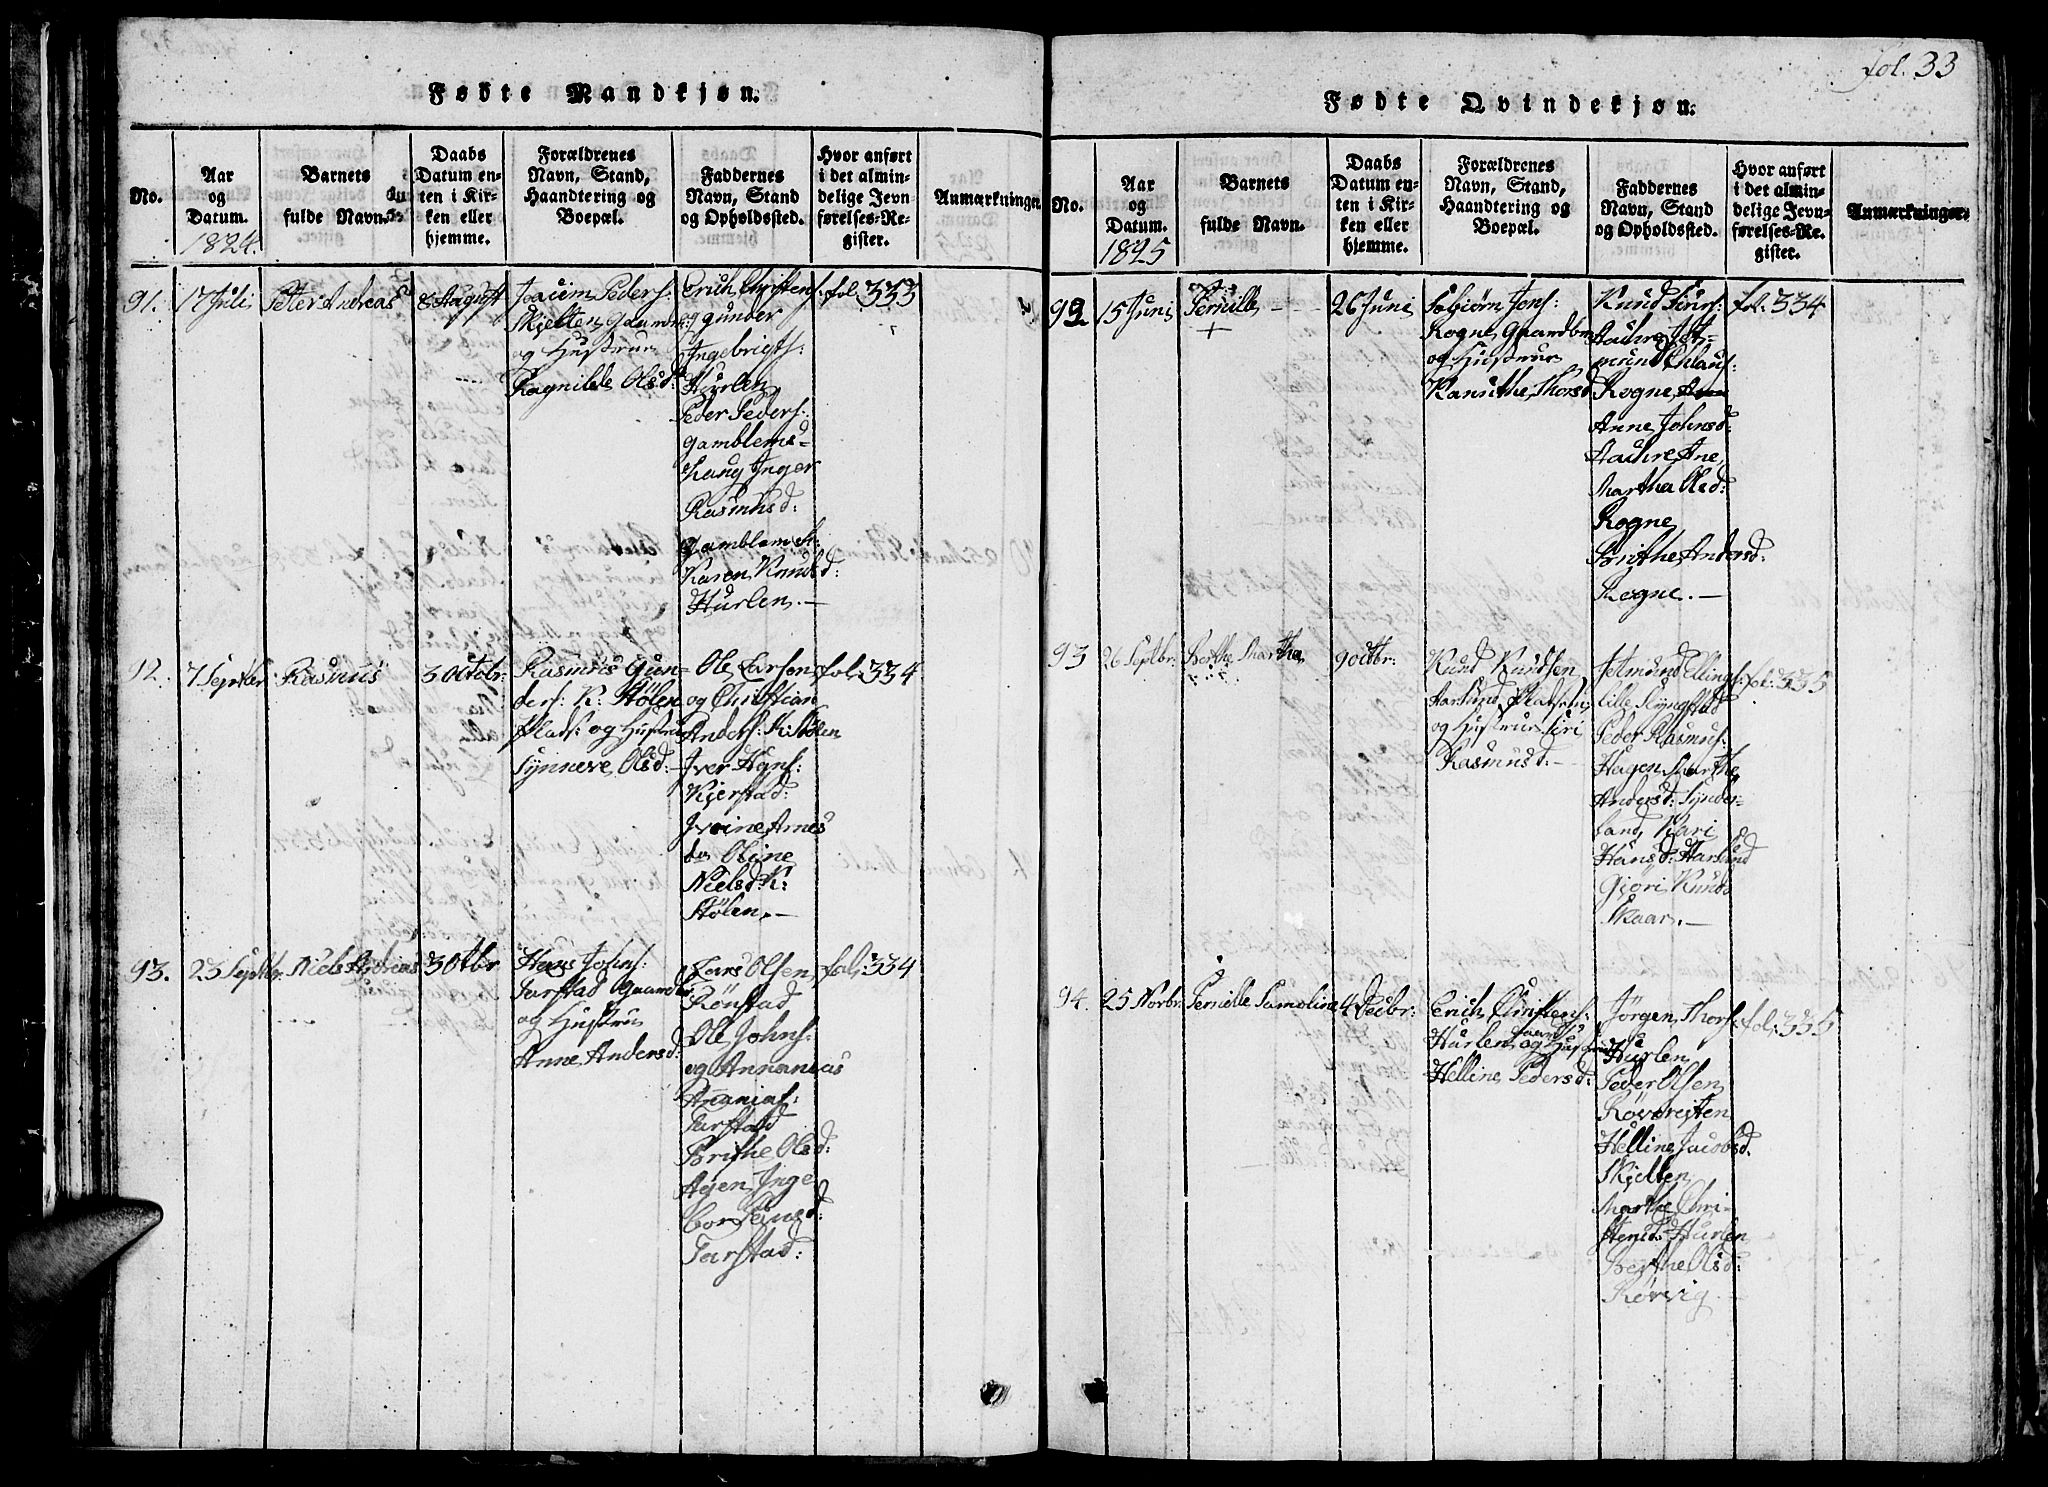 fol. 33
Fødte Mandkjøn.
No.
Aar
og
Datum.
1824.
Barnets
fulde Navn.
Daabs
Datum en-
ten i Kir-
ken eller
hjemme.
Forældrenes
Navn, Stand,
Haandtering og
Boepæl.
Faddernes
Navn, Stand
og Opholdssted.
Hvor anført
i det almin-
delige Jevn-
førelses-Re-
gister.
Anmærkninger.
91.
17 Juli
Peter Andreas
8 August
Joacim Peders:
Skjelten, Gaardbr:
og Hustrue
Ragnilde Olsd:
Erich Christens:
og Gunder
Ingebrigts:
Hurlen
Peder Peders:
Gamblems-
haug Inger
Rasmusd:
Gamblemsh:
Karen Knudsd:
Hurlen. —
fol. 333
92.
7 Septbr
Rasmus
3 Octbr:
Rasmus Gun-
ders: K: Stølen
Plads: og Hustrue
Synneve Olsd: —
Ole Larsen
og Christian
Anders: K: Stølen
Iver Hans:
Kjerstad
Ivrine Arnes
do Oline
Nielsd: K:
Stølen. —
fol: 334
93.
23 Septbr:
Niels Andreas
3 Octbr
Hans Johns:
Tarstad Gaardbr:
og Hustrue
Anne Andersd:
Lars Olsen
Rønstad
Ole Johns:
og Annanias
Ananias:
Tarstad
Brithe Olsd:
Agen, Inge
bor Hansd:
Tarstad:
fol: 334
Fødte Qvindekjøn.
No.
Aar
og
Datum.
1825
Barnets
fulde Navn.
Daabs
Datum en-
ten i Kir-
ken eller
hjemme.
Forældrenes
Navn, Stand,
Haandtering og
Boepæl.
Faddernes
Navn, Stand
og Opholdssted.
Hvor anført
i det almin-
delige Jevn-
førelses-Re-
gister.
Anmærkninger.
92.
15 Juni
Pernille —
+
26 Juni
Esbjørn Jons:
Rogne, Gaardbr
og Hustrue
Kanuthe Thorsd
Knud
Jet-
mund
Rogne,
Anne Johnsd:
Ane
Martha Olsd:
Rogne
Brithe Andersd:
Rogne. —
fol: 334
93
26 Septbr:
Berthe Martha
9 Octbr:
Knud Knudsen
Harlund, Pladsen
og Hustrue Siri
Rasmusd: —
Jetmund Ellings:
lille Slyngstad
Peder Rasmus:
Hagen Marthe
Andersd: Synder-
land, Kari
Hansd: Harlund
Gjøri Knuds
Skaar. —
fol: 335
94.
25 Novbr:
Pernelle Samoline
4 Decbr:
Erich Christens:
Hurlen Gaardbr og Hustrue
Helline Pedersd:
Jørgen Thors:
Hurlen
Peder Olsen
Røvoreiten
Helline Jacobsd.
Skjelten
Marthe Chri-
stensd: Hurlen
Berthe Olsd:
Rørvig —
fol: 335